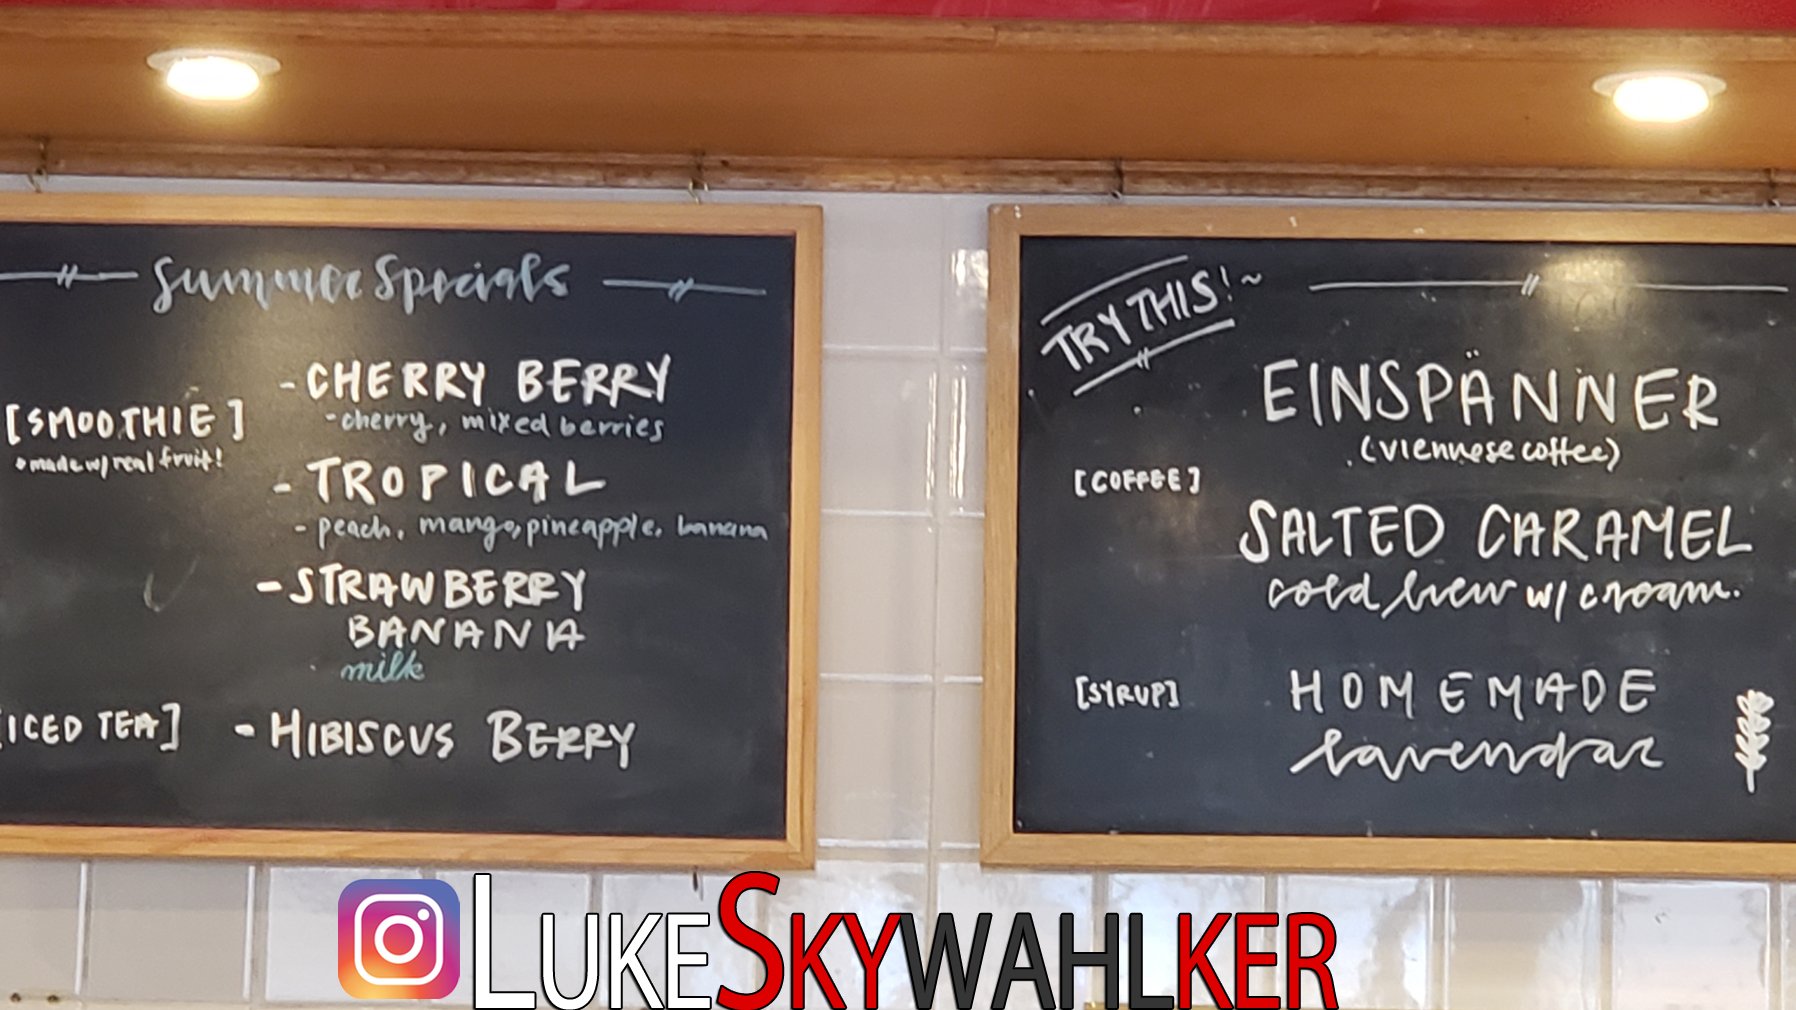 Summer Specials
[SMOOTHIE]
*made w/ real fruit!
- CHERRY BERRY
- cherry, mixed berries
- TROPICAL
- peach, mango, pineapple, banana
- STRAWBERRY
BANANA
milk
[ICED TEA]
- HIBISCUS BERRY
TRY THIS! ~
[COFFEE]
EINSPÄNNER
(viennese coffee)
SALTED CARAMEL
cold brew w/ cream.
[SYRUP]
HOMEMADE
lavendar
LUKESKYWAHLKER